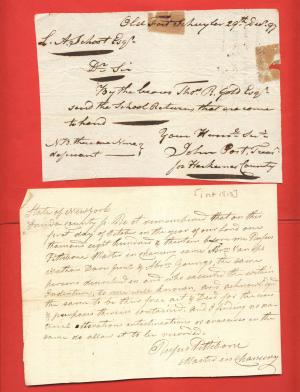 Old Fort Schuyler 29th Decr. 97
L. A. Schoot Esqr.
Dr. Sir
By the bearer Thos. R. Gold Esqr.
send the School Returns that are come
to hand
Your Humle. Ser.
John Post
for Herkemer County
[1 oct 1813]
State of New York
county ss Be it remembered that on this
first day of October in the year of our Lord one
thousand eight hundred & thirteen before me Rufus
Pettibone Master in chancery came
the same
persons described in and who executed the within
Indenture, to me well known, and acknowledged
the same to be their free act & Deed for the uses
& purposes therein contained, and finding no ma
terial alterations interlineations or erasures in the
same do allow it to be recorded.
Rufus Pettibone
Master in Chancery